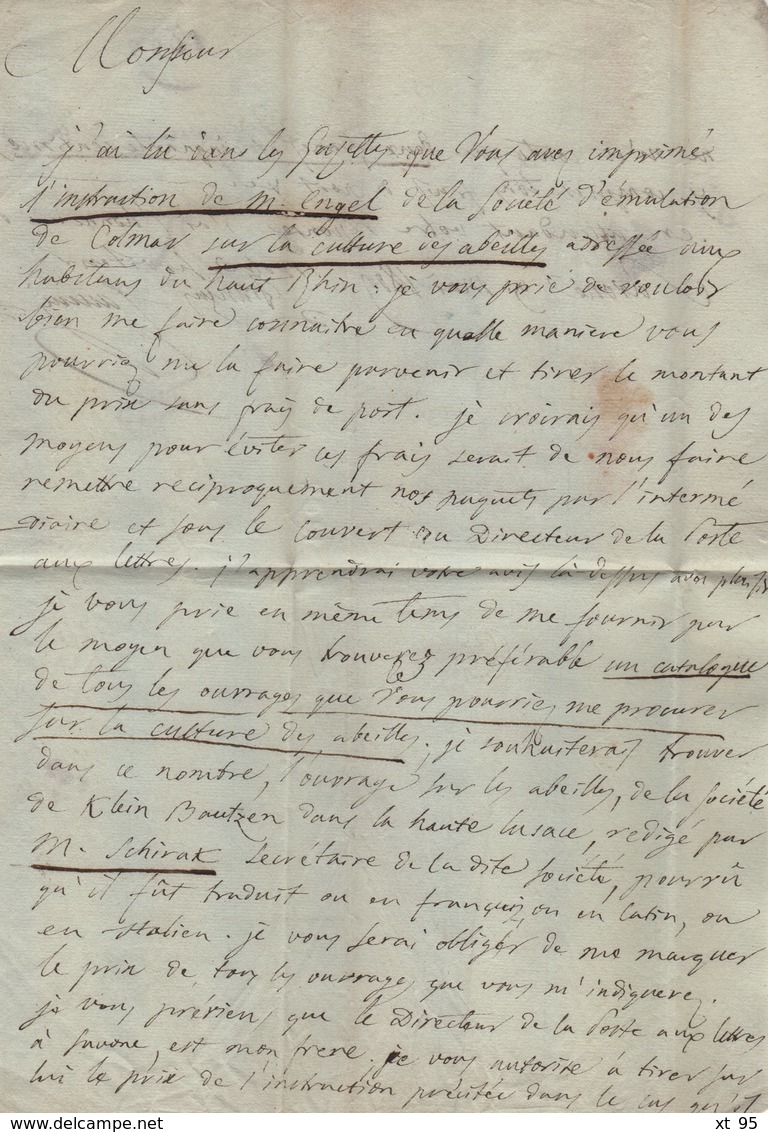 Monsieur
j'ai lû dans les Gazettes que Vous aves imprimé
l'instruction de M. Engel de la Société d'émulation
de Colmar sur la culture des abeilles adressée aux
habitans du haut Rhin : je vous prie de vouloir
bien me faire connaitre en quelle maniere vous
pourriez me la faire parvenir et tirer le montant
du prix sans frais de port. je croirais qu'un des
moyens pour éviter ces frais serait de nous faire
remettre reciproquement nos paquets par l'intermé
diaire et sous le couvert du Directeur de la Poste
aux lettres. j'apprendrai votre avis là dessus avec plaisir
je vous prie en même tems de me fournir par
le moyen que vous trouverez préférable un catalogue
de tous les ouvrages que Vous pourries me procurer
sur la culture des abeilles ; je souhaiterais trouver
dans ce nombre, l'ouvrage sur les abeilles, de la société
de Klein Bautzen dans la haute lusace, redigé par
M. Schirak secrétaire de la dite société, pourvû
qu'il fût traduit ou en français, ou en latin, ou
en italien. je vous serai obligé de me marquer
le prix de tous les ouvrages que vous m'indiquerez.
je vous préviens que le Directeur de la Poste aux lettres
à Savone, est mon frere. je vous autorise à tirer sur
lui le prix de l'instruction précitée dans le cas qu'il
xt 95